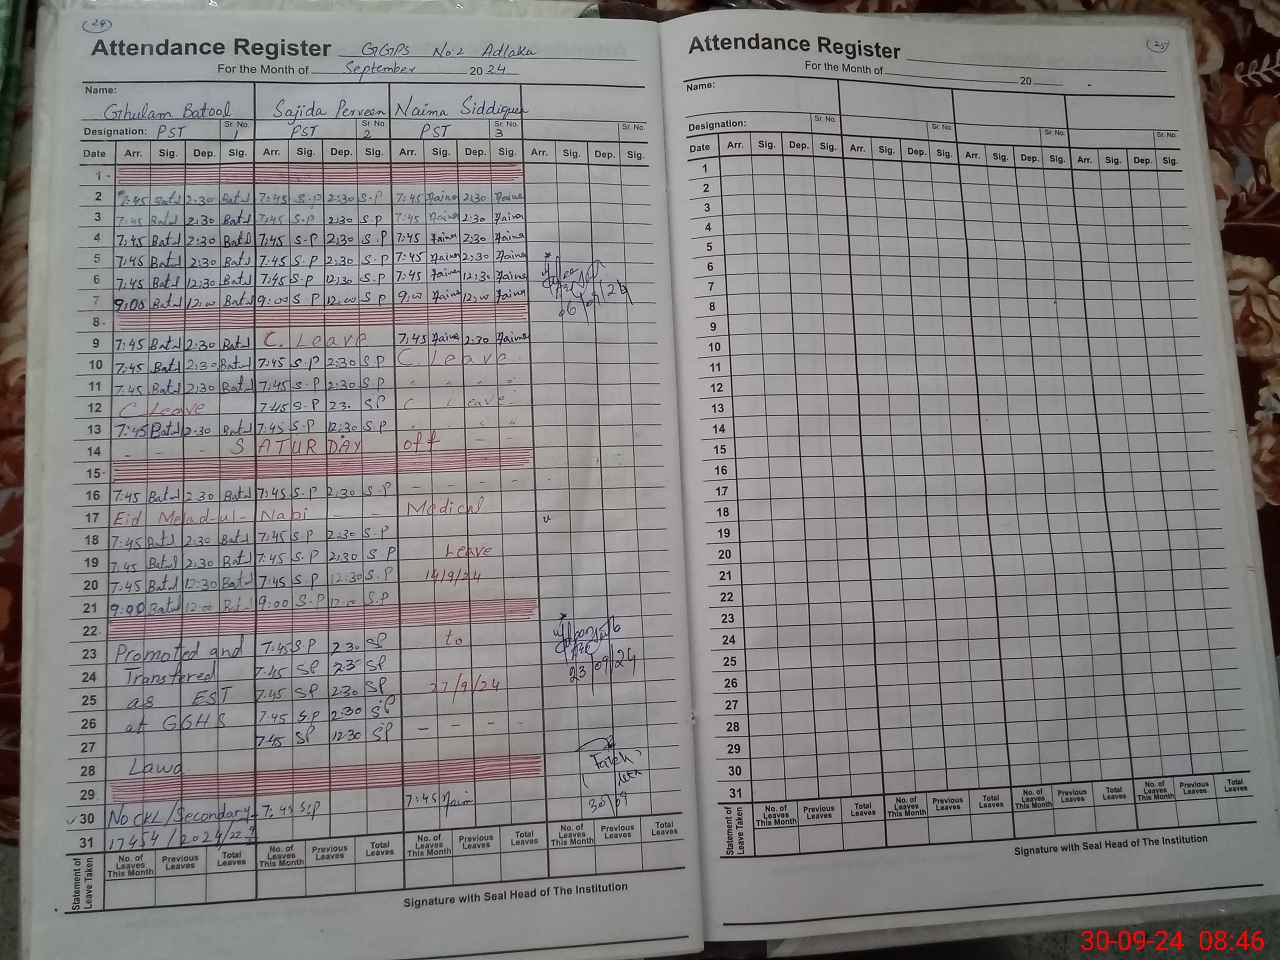 24
Attendance Register GGPS No.2 Adlaka
For the Month of September 2024
Name:
Ghulam Batool Sajida Perveen Naima Siddiqua
Designation: PST Sr. No. 1 PST Sr. No. 2 PST Sr. No. 3 Sr. No.
Date Arr. Sig. Dep. Sig. Arr. Sig. Dep. Sig. Arr. Sig. Dep. Sig. Arr. Sig. Dep. Sig.
1
2 7:45 Batul 2:30 Batul 7:45 S.P 2:30 S.P 7:45 Naima 2:30 Naima
3 7:45 Batul 2:30 Batul 7:45 S.P 2:30 S.P 7:45 Naima 2:30 Naima
4 7:45 Batul 2:30 Batul 7:45 S.P 2:30 S.P 7:45 Naima 2:30 Naima
5 7:45 Batul 2:30 Batul 7:45 S.P 2:30 S.P 7:45 Naima 2:30 Naima
6 7:45 Batul 12:30 Batul 7:45 S.P 12:30 S.P 7:45 Naima 12:30 Naima
06/09/24
7 9:00 Batul 12:00 Batul 9:00 S P 12:00 S P 9:00 Naima 12:00 Naima
8
9 7:45 Batul 2:30 Batul C. Leave 7:45 Naima 2:30 Naima
10 7:45 Batul 2:30 Batul 7:45 S.P 2:30 SP C Leave
11 7:45 Batul 2:30 Batul 7:45 S.P 2:30 SP
12 C Leave 7:45 S.P 23. SP C Leave
13 7:45 Batul 2:30 Batul 7:45 S.P 12:30 S.P
14 - - - SATURDAY off - -
15
16 7:45 Batul 2:30 Batul 7:45 S.P 2:30 S.P - - - -
17 Eid Melad-ul- Nabi - - Medical
18 7:45 Batul 2:30 Batul 7:45 S.P 2:30 S.P
19 7:45 Batul 2:30 Batul 7:45 S.P 2:30 S P Leave
20 7:45 Batul 12:30 Batul 7:45 S.P 12:30 S.P 14/9/24
21 9:00 Batul 12:00 Batul 9:00 S.P 12:00 S.P
22
23 Promoted and 7:45 SP 2:30 SP to
24 Transfered 7:45 SP 23 SP
23/09/24
25 as EST 7:45 SP 2:30 SP 27/9/24
26 at GGHS 7:45 S.P 2:30 SP
27 7:45 SP 12:30 SP - - - -
28 Lawa
29
30 No CKL/Secondary 7:45 S.P 7:45 Naim
30/09
31 17454/2024/22
Statement of Leave Taken
No. of Leaves This Month Previous Leaves Total Leaves No. of Leaves This Month Previous Leaves Total Leaves No. of Leaves This Month Previous Leaves Total Leaves No. of Leaves This Month Previous Leaves Total Leaves
Signature with Seal Head of The Institution
25
Attendance Register
For the Month of 20
Name:
Designation: Sr. No. Sr. No. Sr. No. Sr. No.
Date Arr. Sig. Dep. Sig. Arr. Sig. Dep. Sig. Arr. Sig. Dep. Sig. Arr. Sig. Dep. Sig.
1
2
3
4
5
6
7
8
9
10
11
12
13
14
15
16
17
18
19
20
21
22
23
24
25
26
27
28
29
30
31
Statement of Leave Taken
No. of Leaves This Month Previous Leaves Total Leaves No. of Leaves This Month Previous Leaves Total Leaves No. of Leaves This Month Previous Leaves Total Leaves No. of Leaves This Month Previous Leaves Total Leaves
Signature with Seal Head of The Institution
30-09-24 08:46